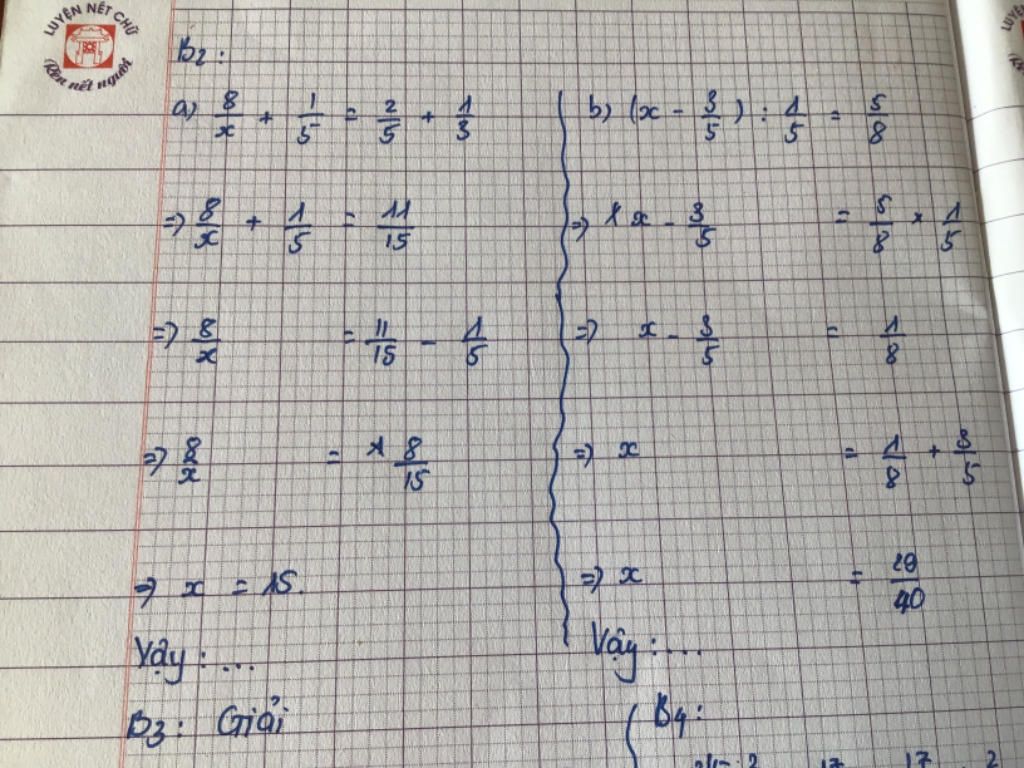 LUYỆN NẾT CHỮ
Rèn nết người
B2:
a) 8/x + 1/5 = 2/5 + 1/3
=> 8/x + 1/5 = 11/15
=> 8/x = 11/15 - 1/5
=> 8/x = 8/15
=> x = 15.
Vậy : ...
B3: Giải
b) (x - 3/5) : 1/5 = 5/8
=> x - 3/5 = 5/8 × 1/5
=> x - 3/5 = 1/8
=> x = 1/8 + 3/5
=> x = 29/40
Vậy : ...
B4: